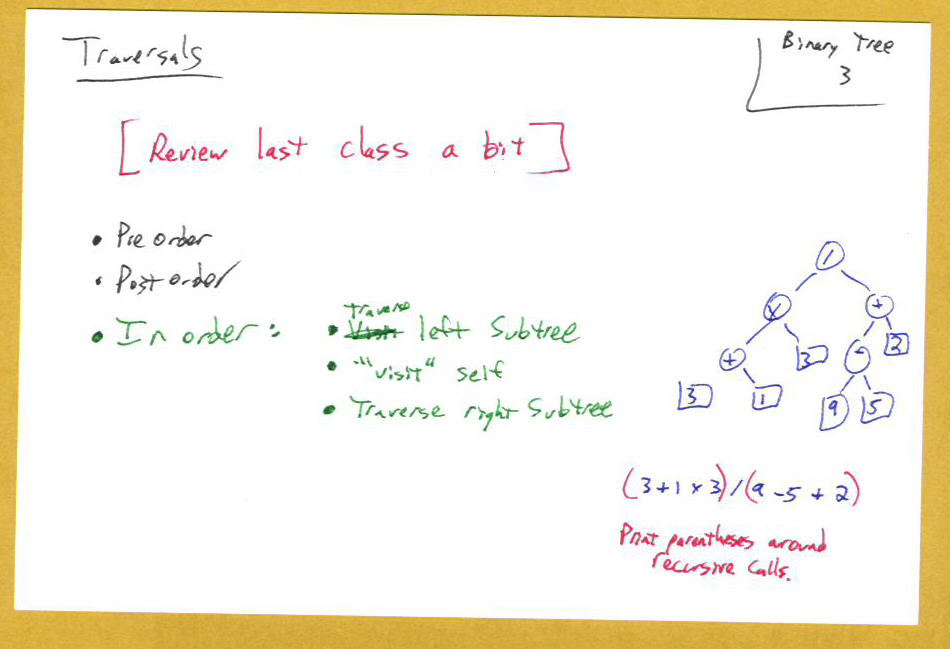 Traversals
Binary Tree
3
[Review last class a bit]
• Pre order
• Post order
• In order:
Traverse
• Visit left Subtree
• "visit" self
• Traverse right Subtree
/
x +
+ 3 - 2
3 1 9 5
(3+1 x 3)/(9-5+2)
Print parentheses around
recursive calls.